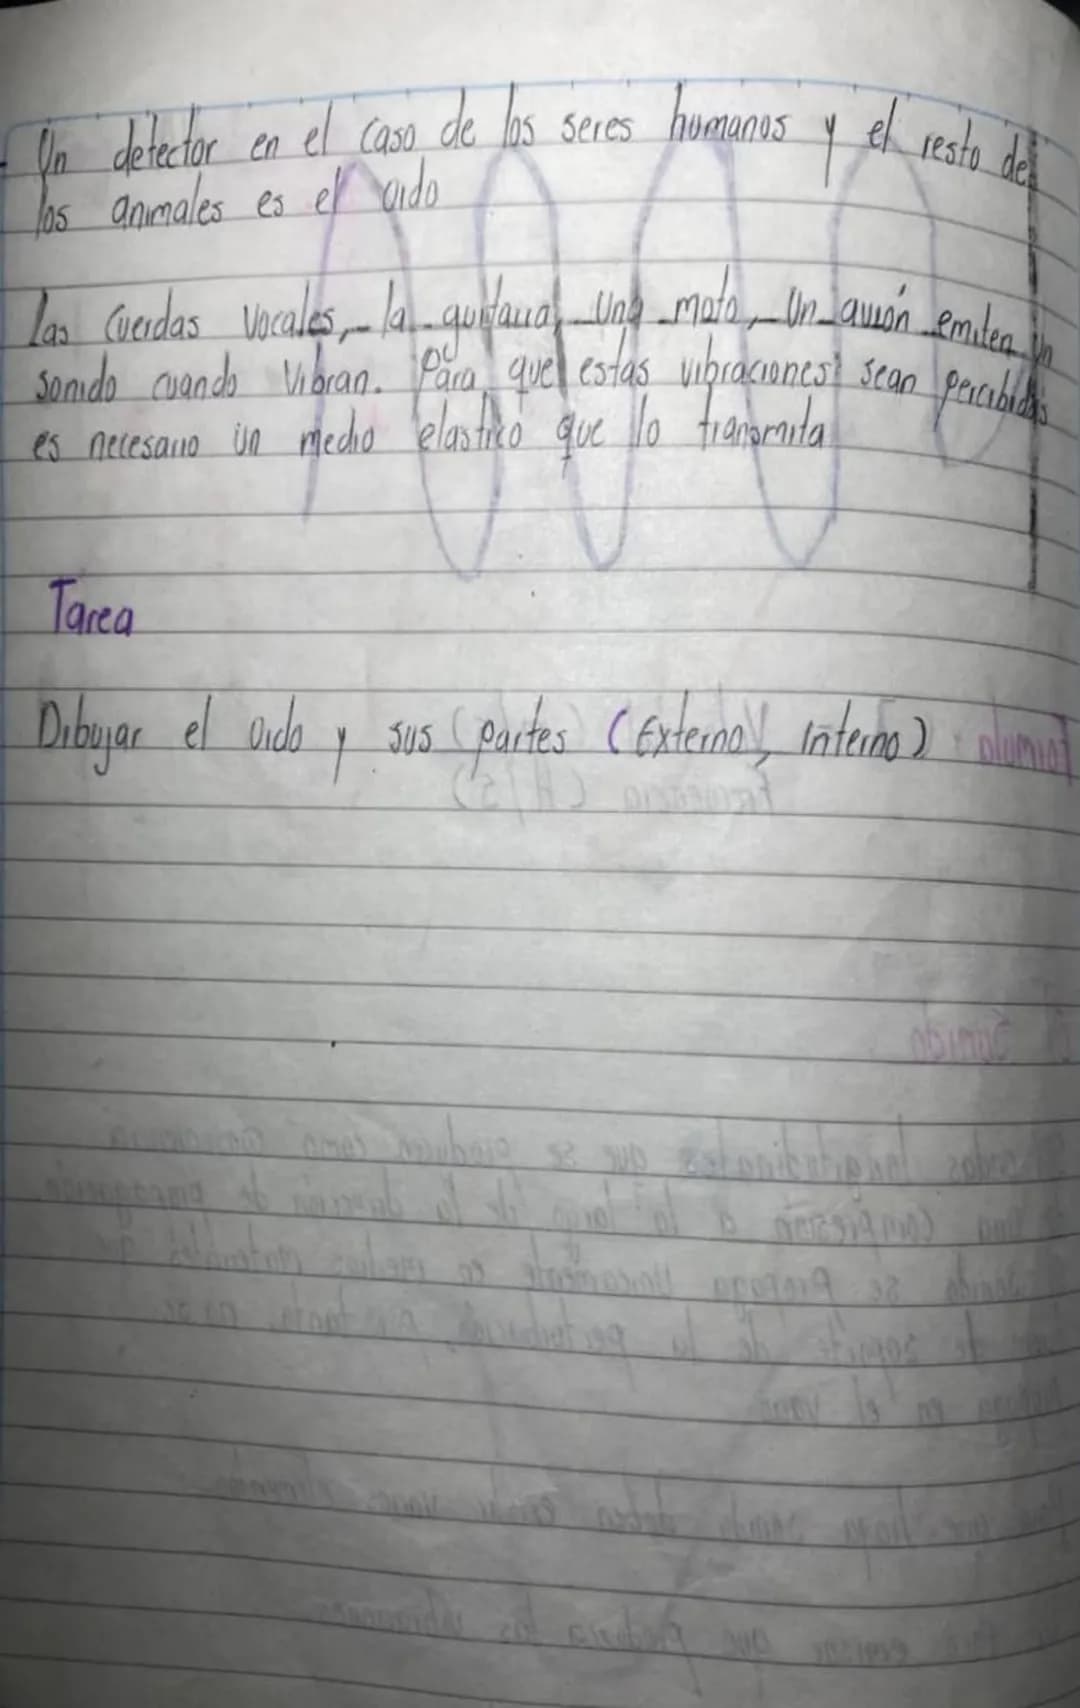 - Un detector en el caso de los seres humanos y el resto de
los animales es el oido
Las cuerdas vocales, la guitarra, una moto, un avión emiten un
sonido cuando vibran. Para que estas vibraciones sean percibidas
es necesario un medio elastico que lo transmita
Tarea
Dibujar el oido y sus partes (Externo, interno)